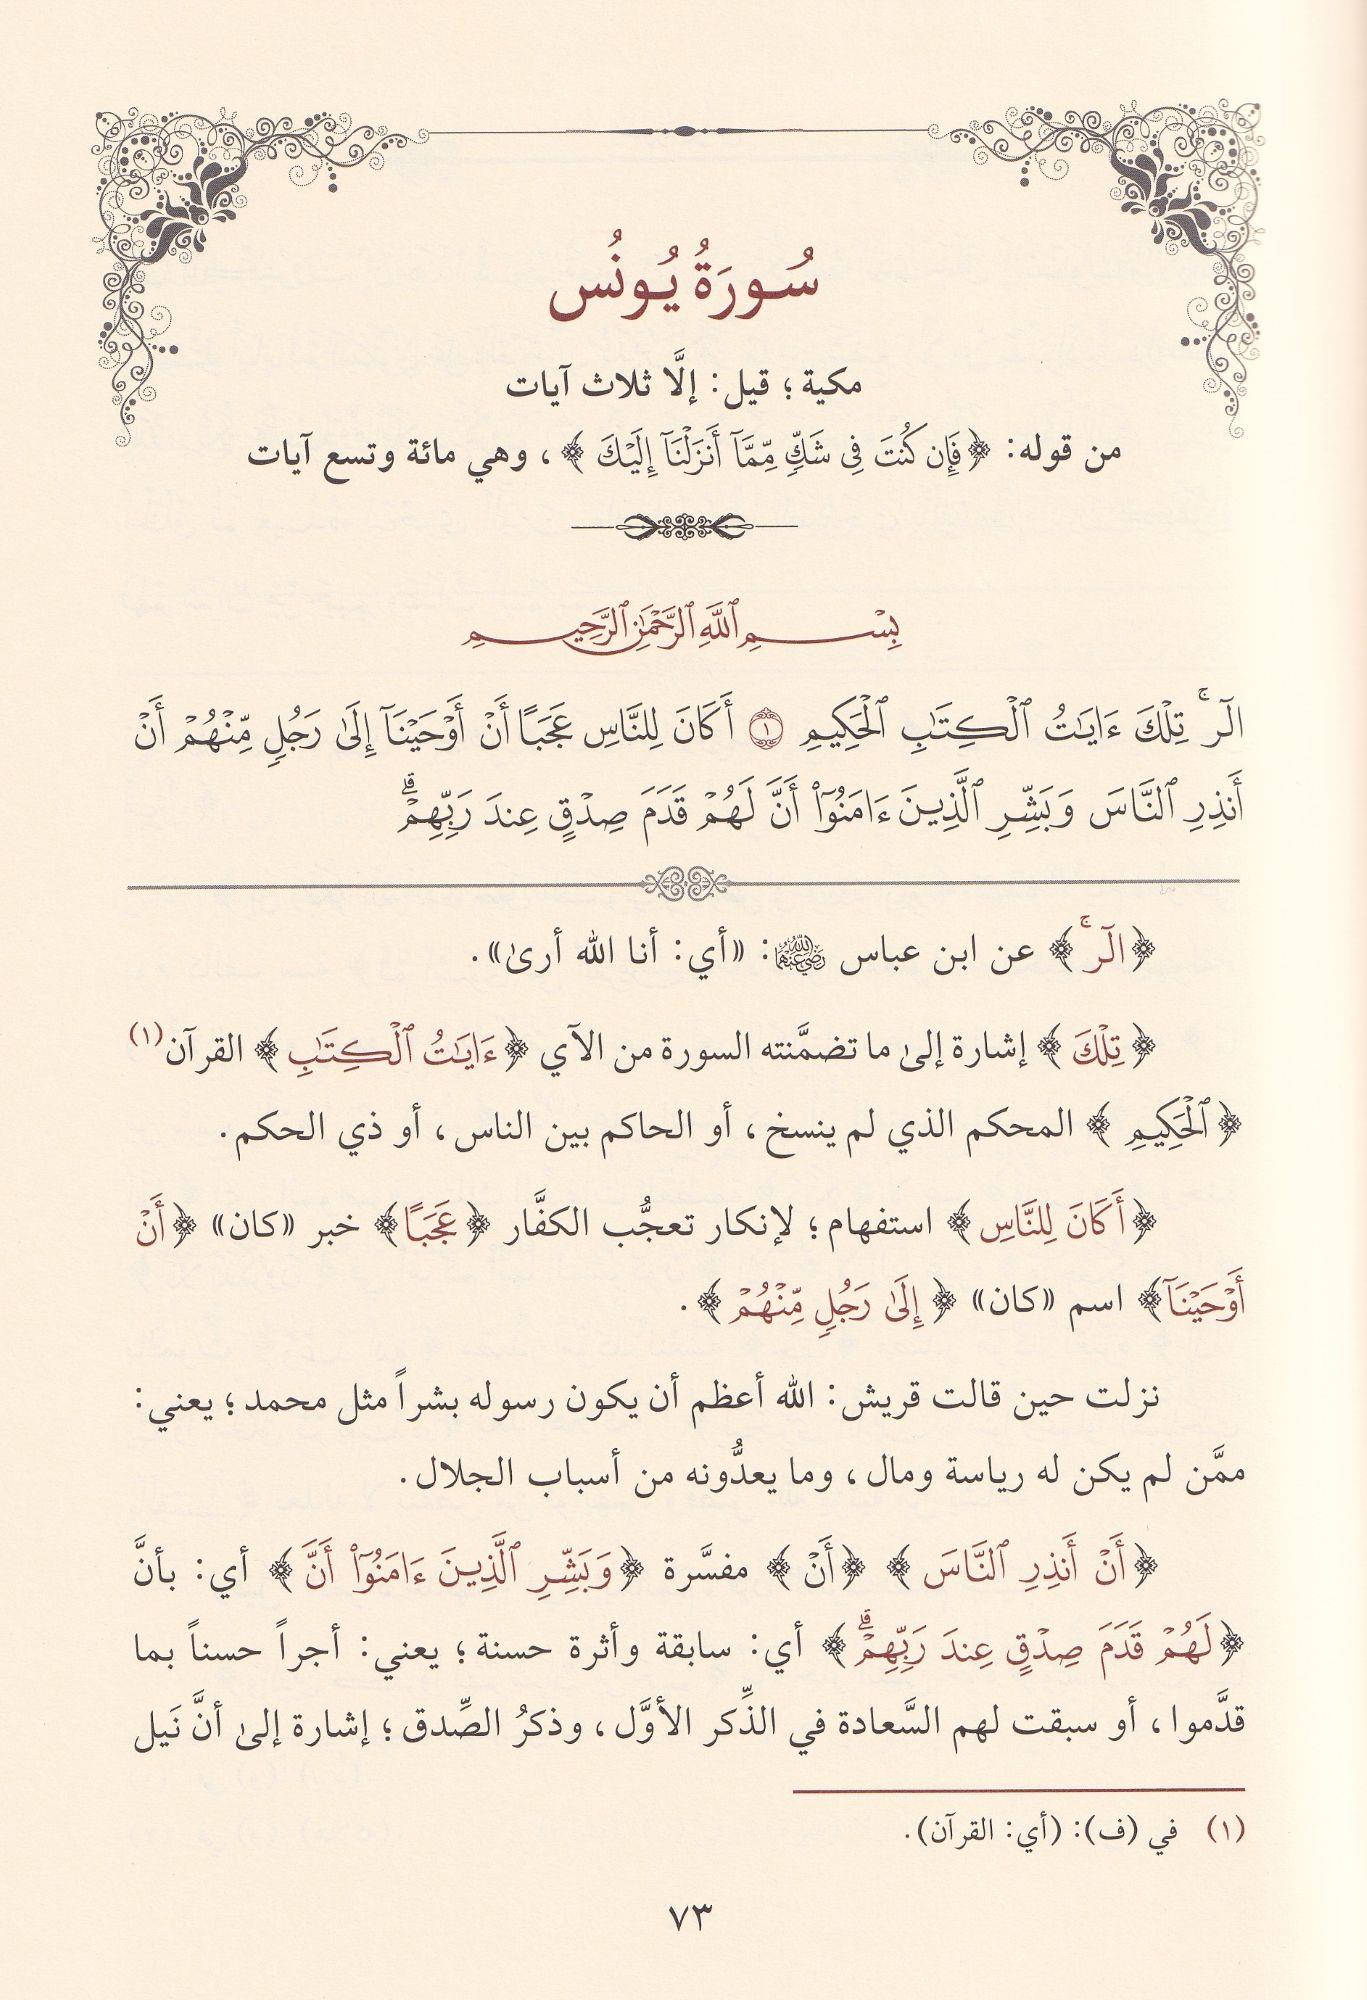 سُورَةُ يُونُس
مكية ؛ قيل: إلَّا ثلاث آيات
من قوله: ﴿فَإِن كُنتَ فِي شَكٍّ مِّمَّآ أَنزَلْنَآ إِلَيْكَ﴾ ، وهي مائة وتسع آيات
بِسْمِ ٱللَّهِ ٱلرَّحْمَٰنِ ٱلرَّحِيمِ
الٓرۚ تِلْكَ ءَايَٰتُ ٱلْكِتَٰبِ ٱلْحَكِيمِ ١ أَكَانَ لِلنَّاسِ عَجَبًا أَنْ أَوْحَيْنَآ إِلَىٰ رَجُلٍ مِّنْهُمْ أَنْ
أَنذِرِ ٱلنَّاسَ وَبَشِّرِ ٱلَّذِينَ ءَامَنُوٓا۟ أَنَّ لَهُمْ قَدَمَ صِدْقٍ عِندَ رَبِّهِمْۗ
﴿الٓرۚ﴾ عن ابن عباس رضي الله عنهما: «أي: أنا الله أرىٰ».
﴿تِلْكَ﴾ إشارة إلىٰ ما تضمَّنته السورة من الآي ﴿ءَايَٰتُ ٱلْكِتَٰبِ﴾ القرآن(١)
﴿ٱلْحَكِيمِ﴾ المحكم الذي لم ينسخ ، أو الحاكم بين الناس ، أو ذي الحكم.
﴿أَكَانَ لِلنَّاسِ﴾ استفهام ؛ لإنكار تعجُّب الكفَّار ﴿عَجَبًا﴾ خبر «كان» ﴿أَنْ
أَوْحَيْنَآ﴾ اسم «كان» ﴿إِلَىٰ رَجُلٍ مِّنْهُمْ﴾.
نزلت حين قالت قريش: الله أعظم أن يكون رسوله بشراً مثل محمد ؛ يعني:
ممَّن لم يكن له رياسة ومال ، وما يعدُّونه من أسباب الجلال.
﴿أَنْ أَنذِرِ ٱلنَّاسَ﴾ ﴿أَنْ﴾ مفسَّرة ﴿وَبَشِّرِ ٱلَّذِينَ ءَامَنُوٓا۟ أَنَّ﴾ أي: بأنَّ
﴿لَهُمْ قَدَمَ صِدْقٍ عِندَ رَبِّهِمْۗ﴾ أي: سابقة وأثرة حسنة ؛ يعني: أجراً حسناً بما
قدَّموا ، أو سبقت لهم السَّعادة في الذِّكر الأوَّل ، وذكرُ الصِّدق ؛ إشارة إلىٰ أنَّ نَيل
(١) في (ف): (أي: القرآن).
٧٣